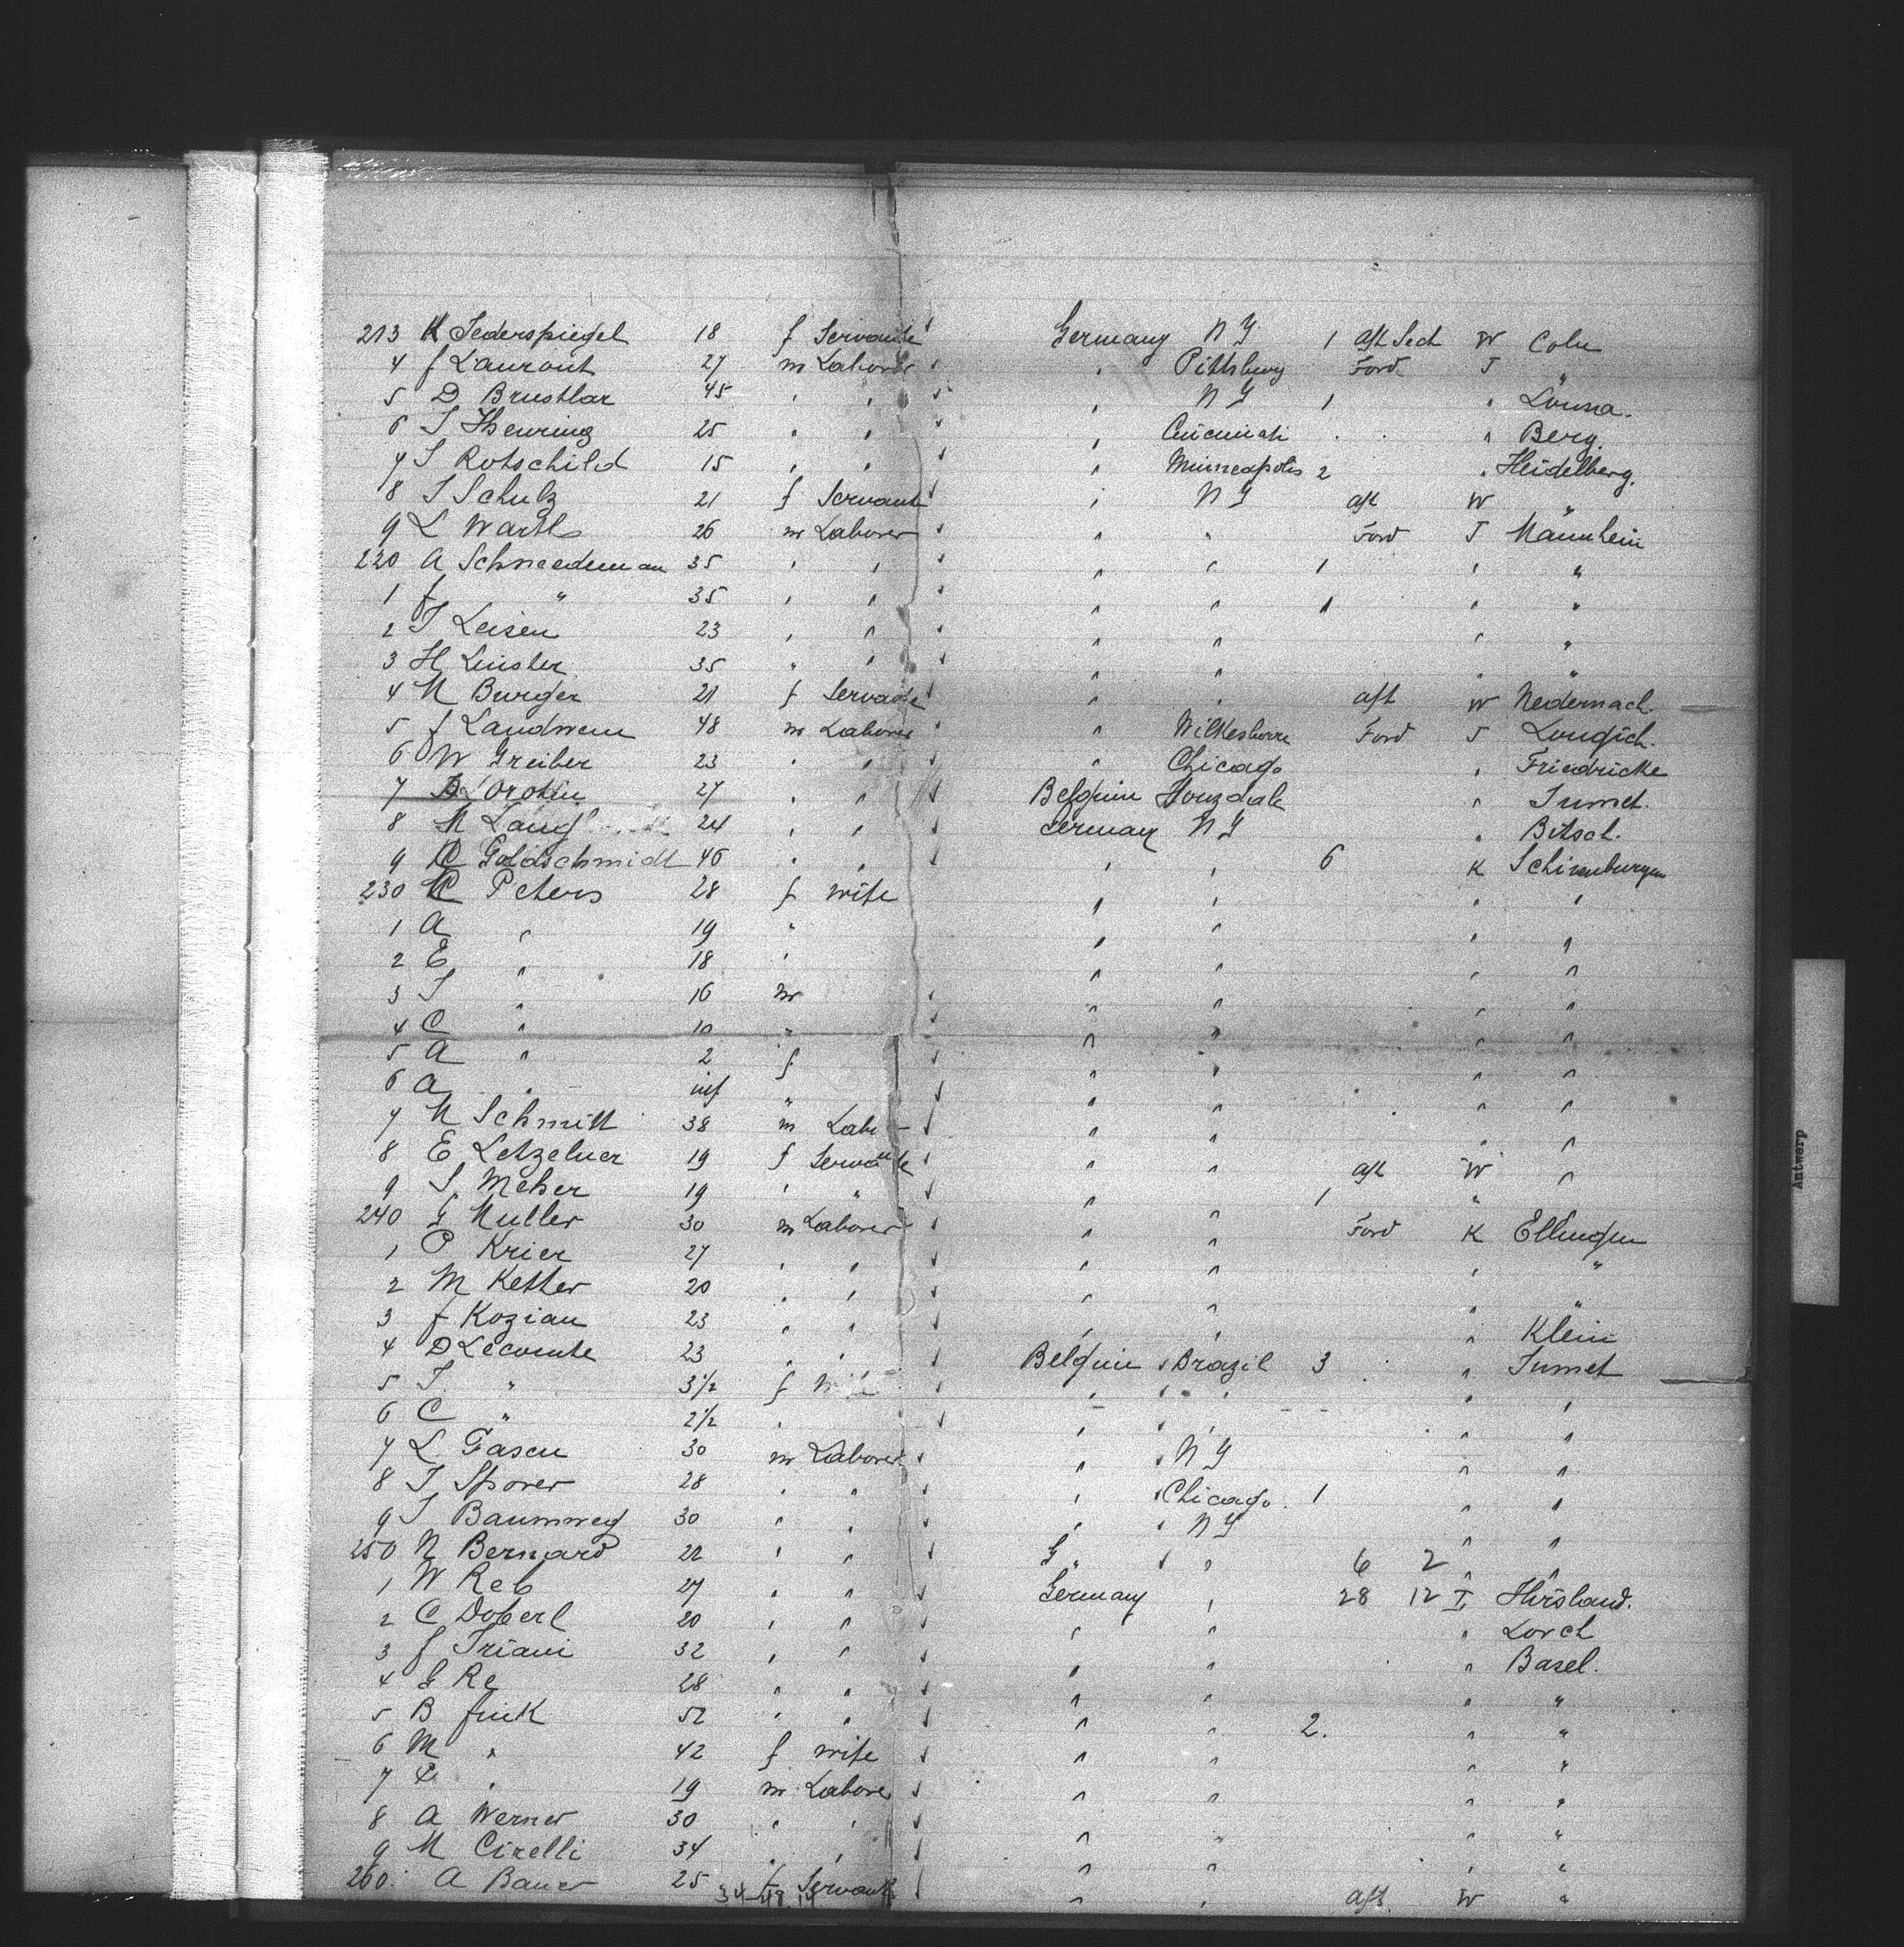 213 K Federspiegel 18 f Servante Germany N Y 1 aft Sect W Coln
4 f Lauront 27 m Laborer " Pittsburg Ford J "
5 D Brustlar 45 " " " N Y 1 " Louna.
6 J Heuring 25 " " " Cincinati " Berg.
7 S Rotschild 15 " " " Minneapolis 2 " Heidelberg.
8 J Schulz 21 f Servante " N Y aft W "
9 L Wartls 26 m Laborer " " Ford J Mannheim
220 A Schneedeman 35 " " " " 1 " "
1 f " 35 " " " " 1 " "
2 J Leisen 23 " " " " " "
3 H Linster 35 " " " " " "
4 M Burger 21 f Servante " " aft W Nedernach.
5 f Landwein 48 m Laborer " Wilkesbarre Ford J Longich.
6 W Greiber 23 " " " Chicago " Friedricke
7 27 " " Belgium Houzdale " Jumet.
8 M Lang 24 " " Germany N Y " Bitsch.
9 C Goldschmidt 46 " " " " 6 K
230 C Peters 28 f wife " " " "
1 A " 19 " " " " "
2 E " 18 " " " " "
3 J " 16 m " " " "
4 C " 10 " " " " "
5 A " 2 f " " " "
6 A " inf " " " " "
7 N Schmitt 38 m Labr " " " "
8 E Letzelner 19 f Servante " " aft W "
9 S Meher 19 " " " " 1 "
240 G Muller 30 m Laborer " " Ford K Ellingen
1 P Krier 27 " " " " " "
2 M Ketter 20 " " " " " "
3 f Kozian 23 " " " " " Klein
4 D Lecomte 23 " " Belgium Brazil 3 " Jumet
5 J " 3 1/2 f " " " "
6 C " 2 1/2 " " " " "
7 L Gasen 30 m Laborer " N Y " "
8 J Sporer 28 " " " Chicago 1 " "
9 J Baumweg 30 " " " N Y " "
250 N Bernard 22 " " G " " 6 2 " "
1 W Reb 27 " " Germany " 28 12 I Hirsland.
2 C Doberl 20 " " " " " Lorch
3 f Triani 32 " " " " " Basel.
4 G Re 28 " " " " " "
5 B fink 52 " " " " 2. " "
6 M " 42 f wife " " " "
7 P " 19 m Laborer " " " "
8 A Werner 30 " " " " " "
9 M Cirelli 34 " " " " " "
260 A Bauer 25 f Servante " " aft. W "
34-48.14
Antwerp